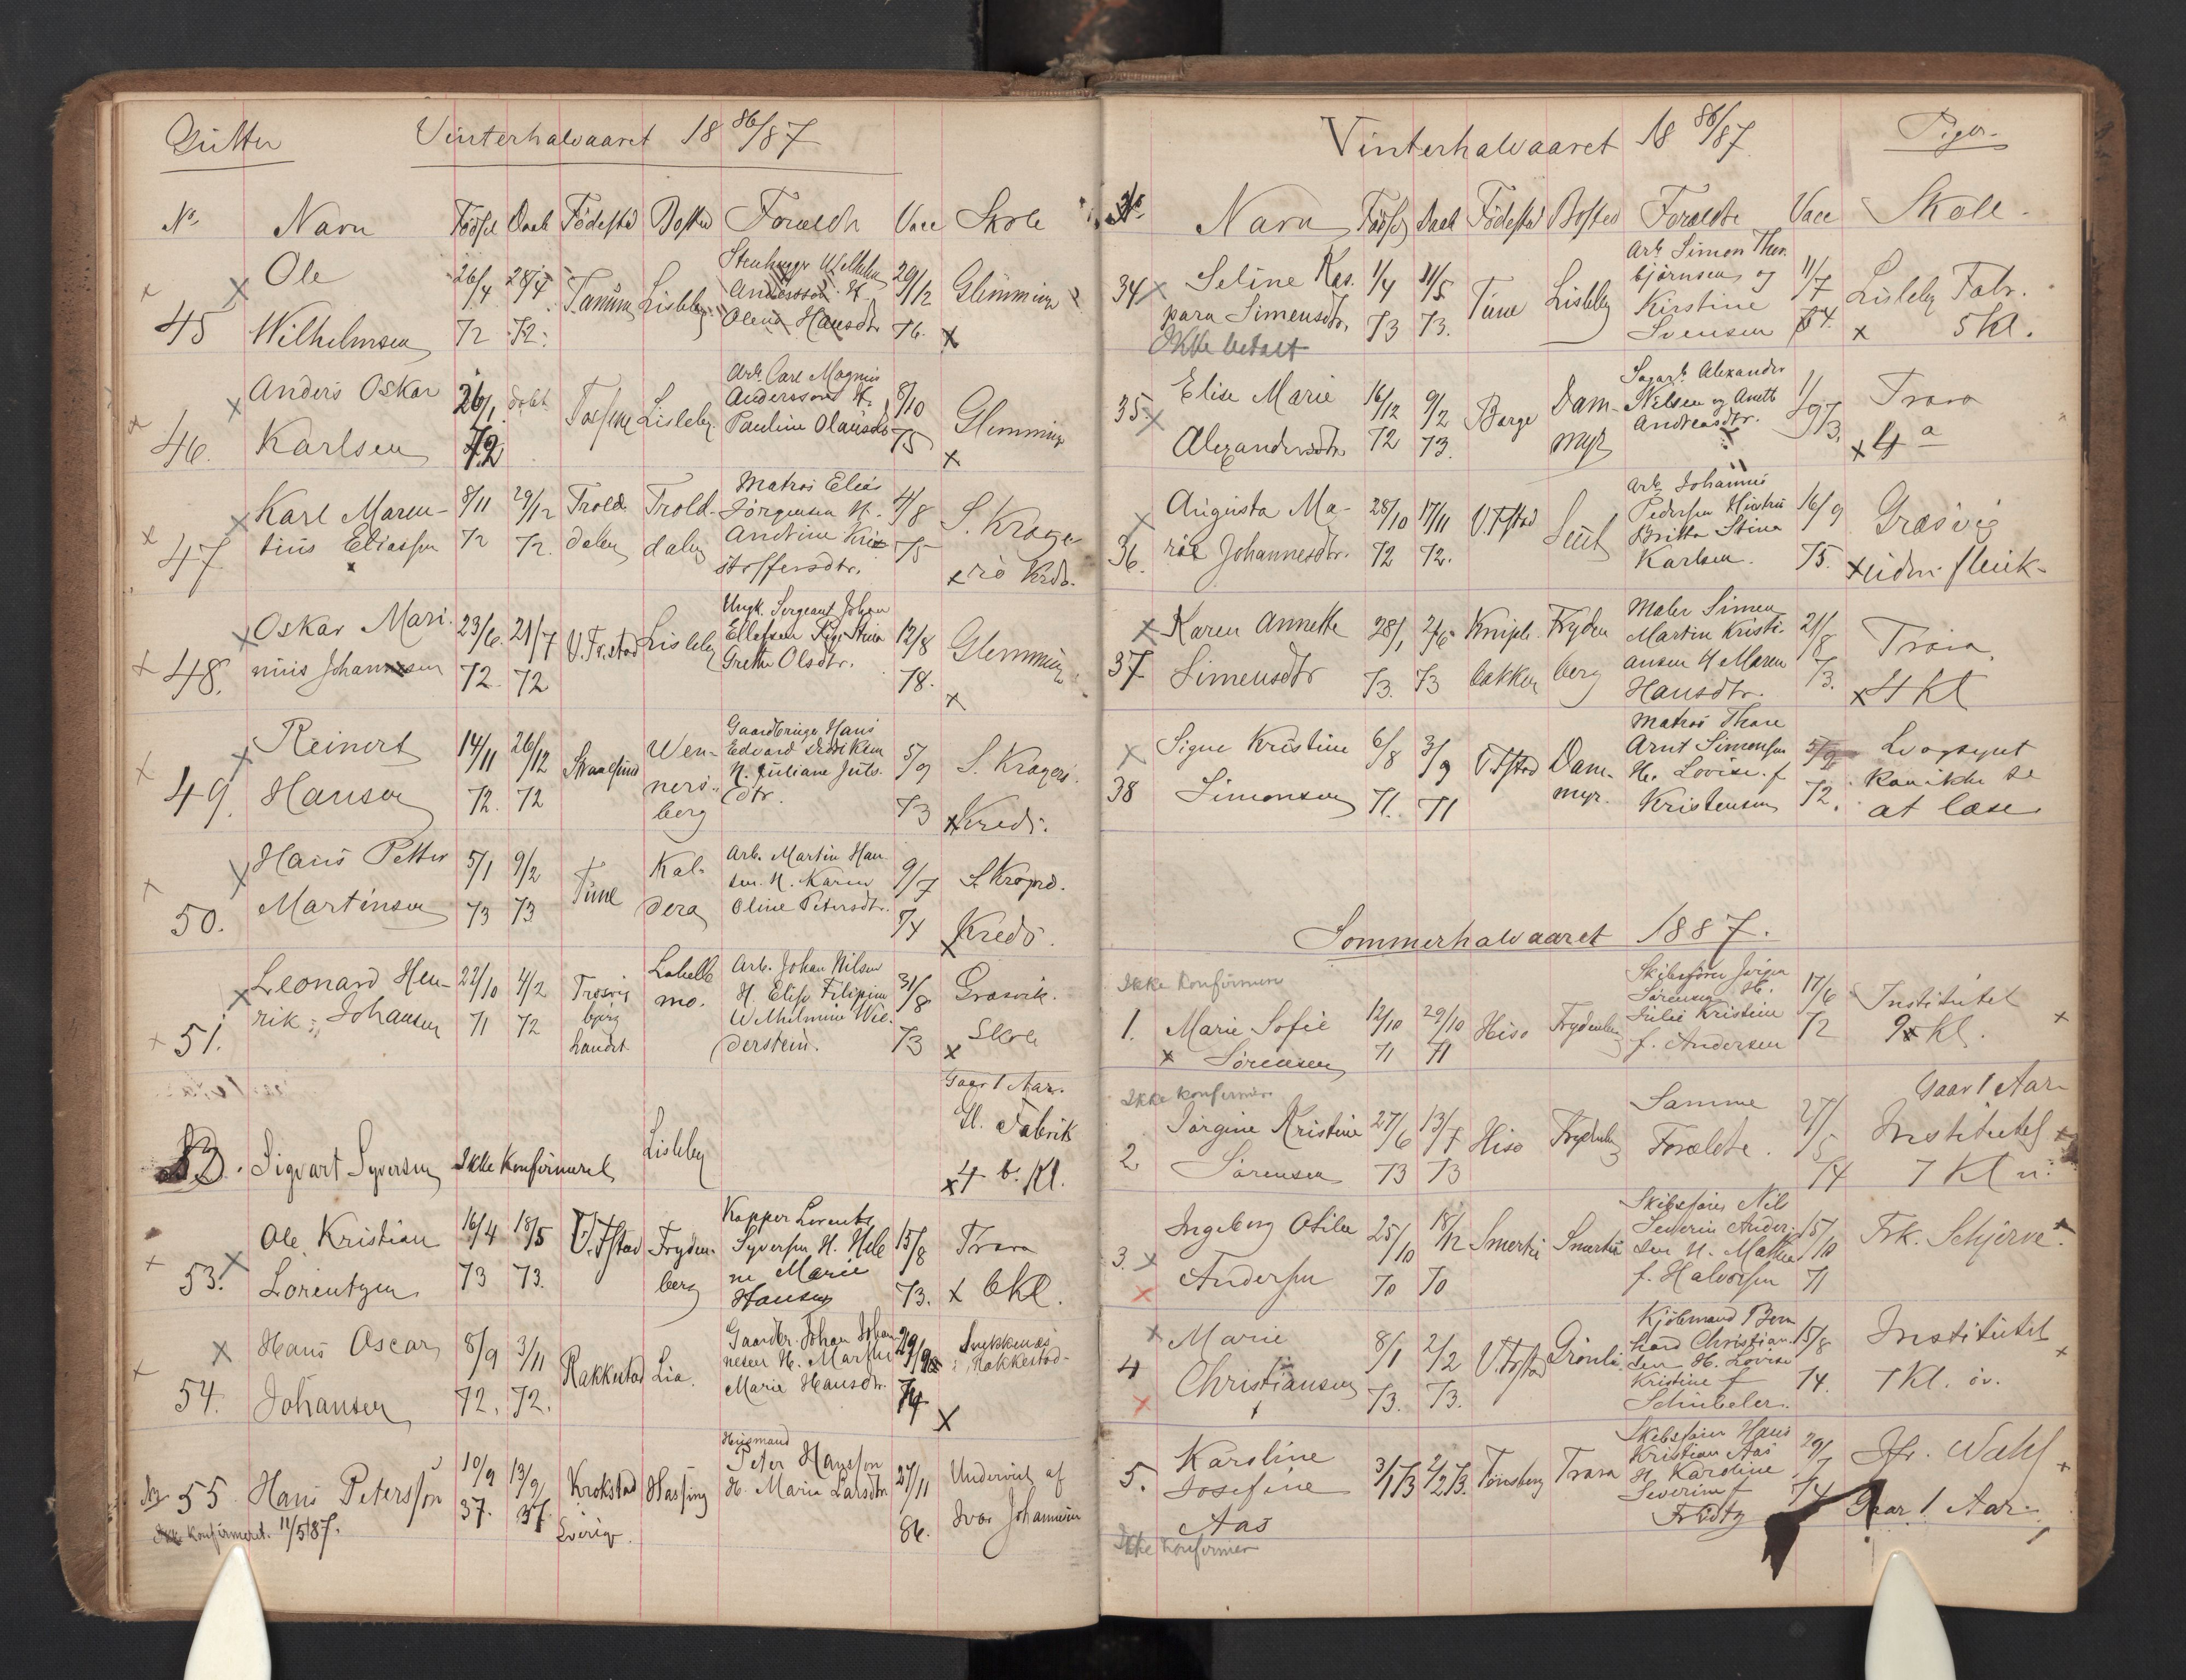 Gutter Vinterhalvaaret 18 86/87
No. Navn Födsel Daab Födested Bosted Forældre Vacc Skole
Ole 26/4 28/4 Stenhugger Wilhelm 29/12
45 Tanum Lisleby Andersson H. Glemminge
Wilhelmsen 72 72. Olena Hansdtr. 76. x
Anders Oskar 26/1 döbt Arb. Carl Magnus 8/10
46. Lisleby Andersson H. Glemminge
Karlsen 72 Pauline Olausdtr 75 x
Karl Maren- 8/11 29/12 Trold- Trold- Matros Elias 4/8 S. Krage
47 tius Eliassen 72 72. dalen dalen Jörgensen H. 75
Andrine Kri
stoffersdtr. x rö Krds.
Oskar Mari- 23/6. 21/7 V. Fr.stad Lisleby Ungk. Sergeant Johan 12/8 Glemminge
48. nius Johannesen 72. 72 Ellefsen Pige Stina 78.
Grethe Olsdtr. x
Reinert 14/11 26/12 Wen- Gaardbruger Hans 5/9 S. Kragerö
49. Hansen 72. 72 ners- Edvard Didriksen 73
berg H. Juliane Juls- x Kreds.
dtr.
Hans Petter 5/1 9/2 Tune Kal- Arb. Martin Han- 9/7
50. Martinsen 73 73 dera sen. H. Karen 74
Oline Petersdtr. x Kreds.
Leonard Hen- 22/10 4/2 Trosvig Labello Arb. Johan Nilsen 31/8 Græsvik.
51. rik Johansen 71 72 bjerg mo. H. Elise Filipine 73 Skole
Wilhelmine Wil- x
derstein.
Gaar 1 Aar.
Gl. Fabrik
53. Sigvart Syversen Ikke Konfirmeret Lisleby
x 4 b. Kl.
Ole Kristian 16/4 18/5 V. Fstad Fryden- Lorents 15/8 Trara
53. Lorentzen 73 73. berg Syversen H. Hele 73. x 6 Kl.
ne Marie
Hansen
Hans Oscar 8/9 3/11 Rakkestad Lia. Gaardbr. Johan Johan- 29/9
54. Johansen 72. 72. nesen H. Marthe 74 Rakkestad-
Marie Hansdtr. x
Husmand
55 Hans Petersson 10/9 13/9 Krokstad Hassing Peter Hansson 27/11 Undervist af
37. 37. Sverige. H. Maria Larsdtr 86. Ivar Johannesen
Ikke Konfirmeret. 11/5 87.
Vinterhalvaaret 18 86/87 Piger.
No. Navn Födsel Daab Födested Bosted Forældre Vacc Skole.
34 x Seline Kas- 1/4 11/5 Tune Lisleby Arb. Simon Thor- 11/7 Lisleby Fabr.
para Simensdtr. 73 73. björnsen og 74. x 5 Kl.
Ikke betalt Kirstine
Svensen
35. x Elise Marie 16/12 9/2 Borge Dam- Alexander Trara
Alexandersdtr. 72 73. myr Nilsen og Anette 73. x 4 a
Andreasdtr.
36. Augusta Ma- 28/10 17/11 V. Fstad Arb. Johannes 16/9 Græsvig
rie Johannesdtr. 72 72. Pedersen Hustru 75.
Britta Stina
Karlsen.
37 x Karen Annette 28/1 2/6 Kniple- Fryden Maler Simen 21/8 Trara.
Simensdtr 73. 73 bakken berg Martin Kristi- 73. x 4 Kl
ansen H Maren
Hansdtr.
38 x Signe Kristine 6/8 3/9 V. Fstad Dam- Matros Thore 5/9 Svagsynt
Simonsen 71. 71 myr. Arnt Simonsen 72. kan ikke se
H. Lovise f. at læse
Kristensen
Sommerhalvaaret 1887.
Ikke Konfirmeres
1. Marie Sofie 12/10 29/10 Hisö Frydenberg Skibsförer Jörgen 17/6 Institutet
x Sörensen 71 71 Sörensen H. 72 9 Kl.
Julie Kristine
f. Andersen
Ikke konfirmeres Gaar 1 Aar
2 Jörgine Kristine 27/6 13/7 Hisö Frydenberg Samme 27/5 Institutet
Sörensen 73 73 Forældre. 74 7 Kl n.
3. x Ingeborg Otilie 25/10 18/12 Smertu Smertu Skibsförer Nils 15/10 Frk. Schjörve.
Andersen 70 70 Severin Ander- 71
sen H. Mathea
f. Halvorsen
4 x Marie 8/1 2/2 V. Frstad Grönli. Kjöbmand Bern 15/8 Institutet
Christiansen 73. 73. hard Christian- 74. 7 Kl. öv.
sen H. Lovise
Kristine f
Schübeler.
5. Karoline 3/1 73 2/2 73. Tönsberg Trara Skibsförer Hans Jfr. Wahl
Josefine Kristian Aas 74 Gaar 1 Aar.
Aas H. Karoline
Severine f
Ikke konfirmer